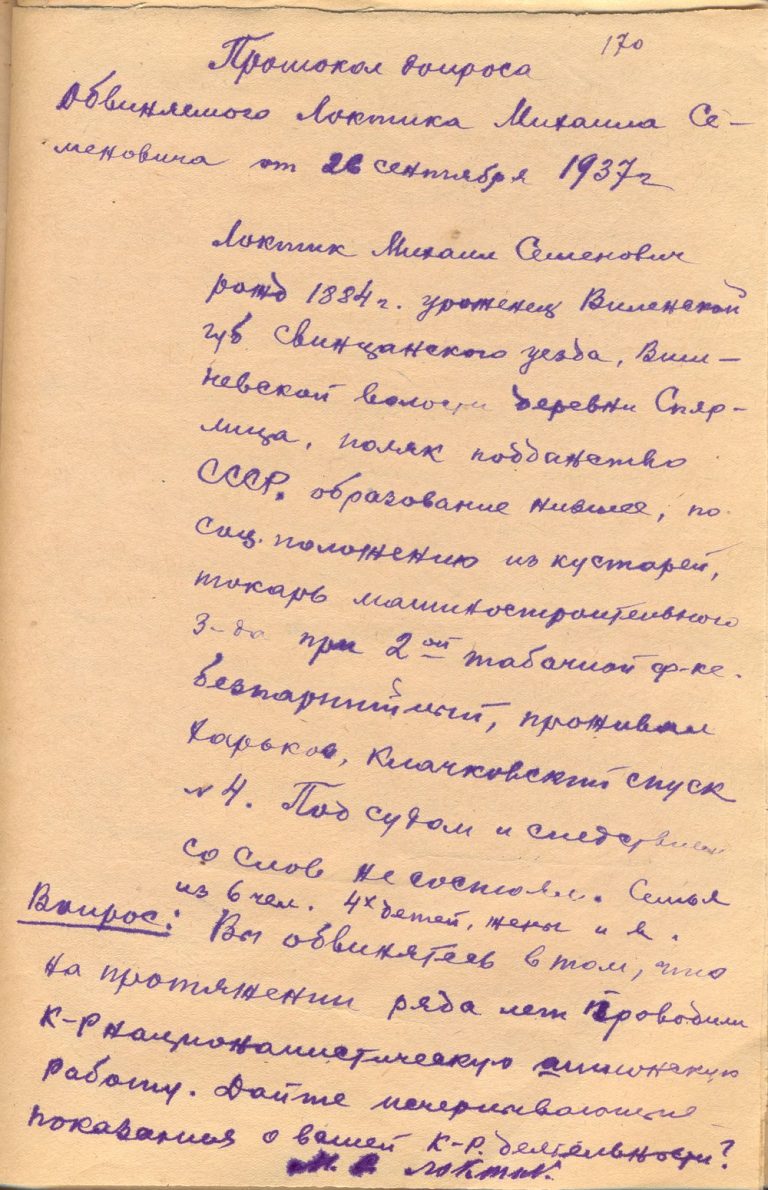 170
Протокол допроса
Обвиняемого Локтика Михаила Се-
меновича от 26 сентября 1937 г
Локтик Михаил Семенович
рожд 1884 г. уроженец Виленской
губ Свинцанского уезда, Виш-
невской волости деревни Спяр-
лица, поляк подданство
СССР. образование низшее, по
соц. положению из кустарей,
токарь машиностроительного
з-да при 2ой табачной ф-ке.
безпартийный, проживал
Харьков, Клачковский спуск
N 4. Под судом и следствием
со слов не состоял. Семья
из 6 чел. 4х детей, жены и я.
Вопрос: Вы обвиняетесь в том, что
на протяжении ряда лет проводили
к-р националистическую шпионскую
работу. Дайте исчерпывающие
показания о вашей к-р. деятельности?
М. С. Локтик.